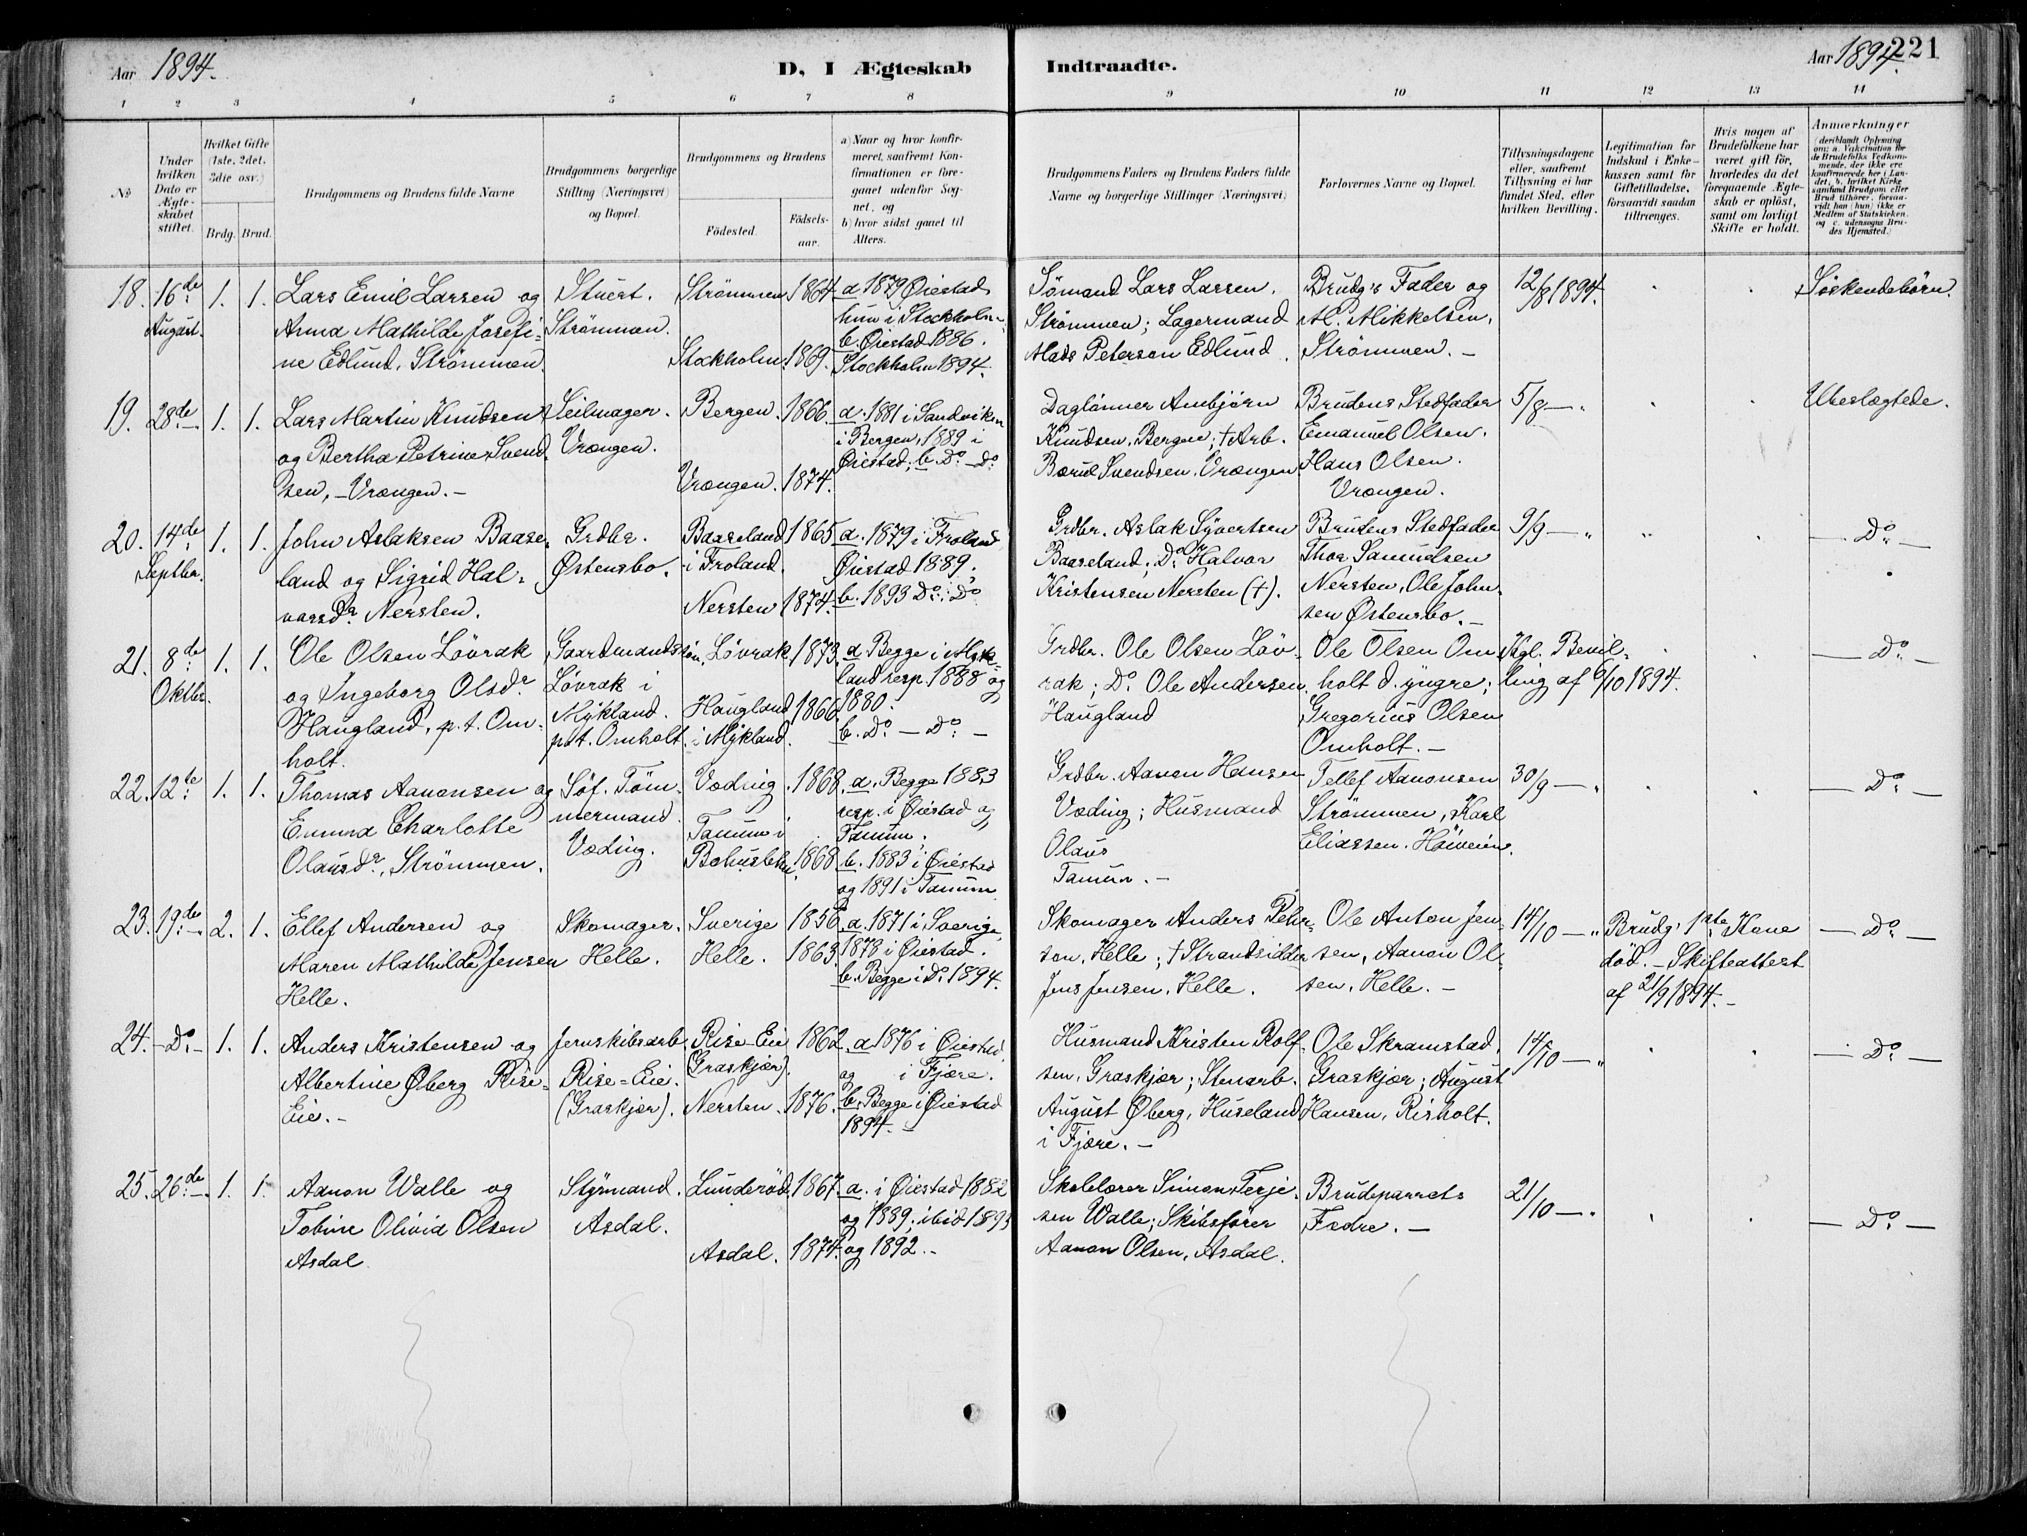 Aar 1894.
D, I Ægteskab Indtraadte.
Aar 1894.
221
1 2 3 4 5 6 7 8 9 10 11 12 13 14
No
Under hvilken Dato er Ægteskabet stiftet.
Hvilket Gifte (1ste, 2det, 3die osv.)
Brdg. Brud.
Brudgommens og Brudens fulde Navne
Brudgommens borgerlige Stilling (Næringsvei) og Bopæl.
Brudgommens og Brudens
Fødested.
Fødselsaar.
a) Naar og hvor konfirmeret, saafremt Konfirmationen er foregaaet udenfor Sognet, og
b) hvor sidst gaaet til Alters.
Brudgommens Faders og Brudens Faders fulde Navne og borgerlige Stillinger (Næringsvei)
Forlovernes Navne og Bopæl.
Tillysningsdagene eller, saafremt Tillysning ei har fundet Sted, efter hvilken Bevilling.
Legitimation for Indskud i Enkekassen samt for Giftetilladelse, forsaavidt saadan tiltrænges.
Hvis nogen af Brudefolkene har været gift før, hvorledes da det foregaaende Ægteskab er opløst, samt om lovligt Skifte er holdt.
Anmærkninger
(deriblandt Oplysning om: a. Vaccination for de Brudefolks Vedkommende, der ikke ere konfirmerede her i Landet, b. hvilket Kirkesamfund Brudgom eller Brud tilhører, forsaavidt han (hun) ikke er Medlem af Statskirken, og c. udensogns Brudes Hjemsted.)
18. 16de August. 1. 1.
Lars Emil Larsen og
Anna Mathilde Josefi-
ne Edlund, Strømmen.
Stuert.
Strømmen.
Strømmen 1864.
Stockholm. 1869.
a 1879 Øiestad
hun i Stockholm
b. Øiestad 1886.
Stockholm 1894.
Sømand Lars Larsen,
Strømmen; Lagermand
Mads Peterson Edlund.
Brudg's Fader og
M. Mikkelsen,
Strømmen. -
12/8 1894.
Søskendebørn.
19. 28de - 1. 1.
Lars Martin Knudsen
og Bertha Petrine Svend-
sen, - Vrængen. -
Seilmager.
Vrængen.
Bergen. 1866.
Vrængen. 1874.
a. 1881 i Sandviken
i Bergen, 1889 i
Øiestad; b. Do - Do
Daglønner Ambjørn
Knudsen, Bergen; † Arb.
Børul Svendsen, Vrængen
Brudens Stedfader
Emanuel Olsen.
Hans Olsen.
Vrængen.
5/8 - "
Ubeslægtede.
20. 14de Septbr. 1. 1.
John Aslaksen Baase-
land og Sigrid Hal-
vorsdr Nersten.
Grdbr.
Østensbo.
Baaseland
i Froland. 1865
Nersten 1874.
a. 1879 i Froland,
Øiestad 1889.
b. 1893 Do; Do
Grdbr. Aslak Syvertsen
Baaseland; Do Halvor
Kristensen Nersten (†).
Brudens Stedfader
Thor Samuelsen
Nersten, Ole John-
sen Østensbo. -
9/9 - "
- Do -
21. 8de Oktbr. 1. 1.
Ole Olsen Løvrak
og Ingeborg Olsdr
Haugland, p.t. Om-
holt.
Gaardmandssøn,
Løvrak i
Mykland.
p.t. Omholt.
Løvrak 1873.
Haugland
i Mykland. 1866
a. Begge i Myk-
land resp. 1888 og
1880.
b. Do - Do -
Grdbr. Ole Olsen Løv-
rak; Do Ole Andersen
Haugland
Ole Olsen Om-
holt d. yngre;
Gregorius Olsen
Omholt. -
Kgl. Bevil-
ling af 6/10 1894.
- Do -
22. 12te 1. 1.
Thomas Aanonsen og
Emma Charlotte
Olausdr, Strømmen.
Søf. Tøm-
mermand.
Vøding.
Vøding. 1868.
Tanum i
Bohuslehn. 1868
a. Begge 1883
resp. i Øiestad og
Tanum.
b. 1883 i Øiestad
og 1891 i Tanum
Grdbr. Aanon Hansen
Vøding; Husmand
Olaus
Tanum. -
Tellef Aanonsen
Strømmen, Karl
Eliassen.
30/9 - "
- Do -
23. 19de - 2. 1.
Ellef Andersen og
Maren Mathilde Jensen
Helle.
Skomager.
Helle.
Sverige 1856
Helle. 1863
a. 1871 i Sverige,
1878 i Øiestad.
b. Begge i Do 1894.
Skomager Anders Pehr-
son, Helle; † Strandsidder
Jens Jensen, Helle.
Ole Anton Jen-
sen, Aanon Ol-
sen, Helle. -
14/10 - "
Brudg's 1ste Kone
død. - Skifteattest
af 21/9 1894. -
- Do -
24. - Do - 1. 1.
Anders Kristensen og
Albertine Øberg Rise-
Eie. -
Jernskibsarb.
Rise-Eie.
(Graskjær).
Rise-Eie
(Graskjær). 1862.
Nersten. 1876.
a 1876 i Øiestad
og i Fjære.
b. Begge i Øiestad
1894. -
Husmand Kristen Rolf-
sen, Graskjær; Stenarb.
August Øberg, Huseland
i Fjære. -
Ole Skramstad,
Graskjær; August
Hansen, Risholt.
14/10 - "
- Do -
25. 26de - 1. 1.
Aanon Walle og
Tobine Olivia Olsen
Asdal.
Styrmand.
Asdal.
Lunderød 1867.
Asdal. 1874.
a. i Øiestad 1882
og 1889. ibid 1893
og 1892. -
Skolelærer Simon Terje-
sen Walle; Skibsfører
Aanon Olsen, Asdal.
Brudeparrets
Fædre. -
21/10 - "
- Do -